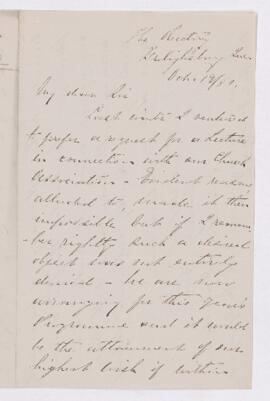 The Rectory
Oct. 19/80.
My dear Sir
Last winter I ventured
to prefer a request for a Lecture
in connection with our Church
Association - Evident reasons
attended to, made it then
impossible but if I remem
-ber rightly such a desired
object was not entirely
denied - We are now
arranging for this year's
Programme and it would
be the attainment of our
highest wish if within